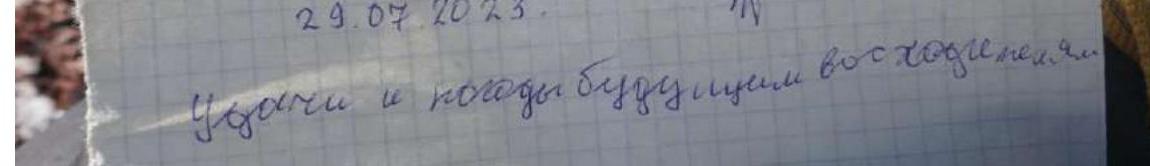 29.07.2023.
Удачи и погоды будущим восходителям